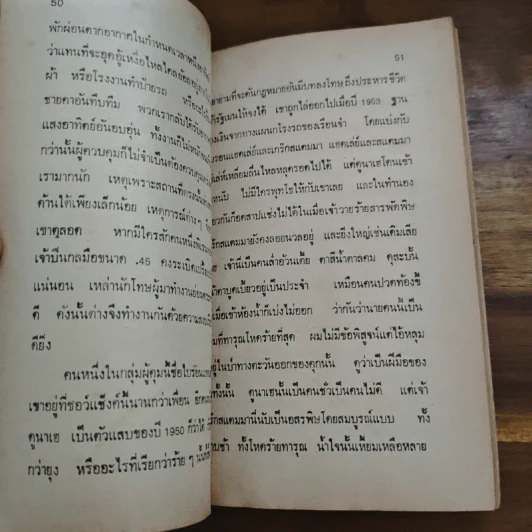 50
พักผ่อนตากอากาศในกำหนดเวลาหนึ่ง
ว่าแทนที่จะอุดอู้เหงื่อไหลไคลย้อย
ผ้า หรือโรงงานทำป้ายรถ
ชายคาอันทึบทึม พวกเรากลับได้รับ
แสงอาทิตย์อันอบอุ่น ทั้งงานก็ไม่หนัก
กว่านั้นผู้ควบคุมก็ไม่จำเป็นต้องควบคุม
เรามากนัก เหตุเพราะสถานที่ตรงนั้น
ด้านใต้เพียงเล็กน้อย เหตุการณ์ต่างๆ
เขาดูลอด หากมีใครสักคนหนึ่ง
เจ้าปืนกลมือขนาด .45 คงระเบิด
แน่นอน เหล่านักโทษผู้มาทำงาน
ดี ดังนั้นต่างจึงทำงานกันด้วยความ
ดียิ่ง
คนหนึ่งในกลุ่มผู้คุมนี้ชื่อไบรอน
เขาอยู่ที่ชอว์แช็งค์นี้นานกว่าเพื่อน
ดูนาเฮ เป็นตัวแสบของปี 1950 ก็ว่าได้
กว่ายุง หรืออะไรที่เรียกว่าร้ายๆ
51
ยายามที่จะดันกฎหมายอันมีบทลงโทษถึงประหารชีวิต
รัฐเมนให้จงได้ เขาถูกไล่ออกไปเมื่อปี 1953 ฐาน
เงินจากทางแผนกโรงรถของเรือนจำ โดยแบ่งกับ
รอนแฮคเล่ย์และเกร๊กสแตมมา แฮคเล่ย์และสแตมมา
เล่ห์เหลี่ยมลื่นไหลหลุดรอดไปได้ แต่ดูนาเฮโดนเข้า
ไม่มีใครพุทโธให้กับเขาเลย และในทำนอง
วกันก็อดสาปแช่งไม่ได้ในเมื่อเจ้าวายร้ายสารพัดพิษ
สแตมมายังคงลอยนวลอยู่ และยิ่งใหญ่เช่นเดิมเสีย
เจ้านี่เป็นคนล่ำอ้วนเตี้ย ตาสีน้ำตาลคม ดุสะบั้น
เป็นประจำ เหมือนคนปวดท้องขี้
เข้าห้องน้ำก็เบ่งไม่ออก ว่ากันว่านายคนนี้เป็น
ที่ทารุณโหดร้ายที่สุด ผมไม่มีข้อพิสูจน์แต่ไอ้หลุม
อยู่ในป่าทางตะวันออกของคุกนั้น ดูว่าเป็นฝีมือของ
ทั้งนั้น ดูนาเฮนั้นเป็นคนชั่วเป็นคนไม่ดี แต่เจ้า
กร๊กสแตมมานี่นับเป็นอสรพิษโดยสมบูรณ์แบบ ทั้ง
ทั้งโหดร้ายทารุณ น้ำใจนั้นเหี้ยมเหลือหลาย